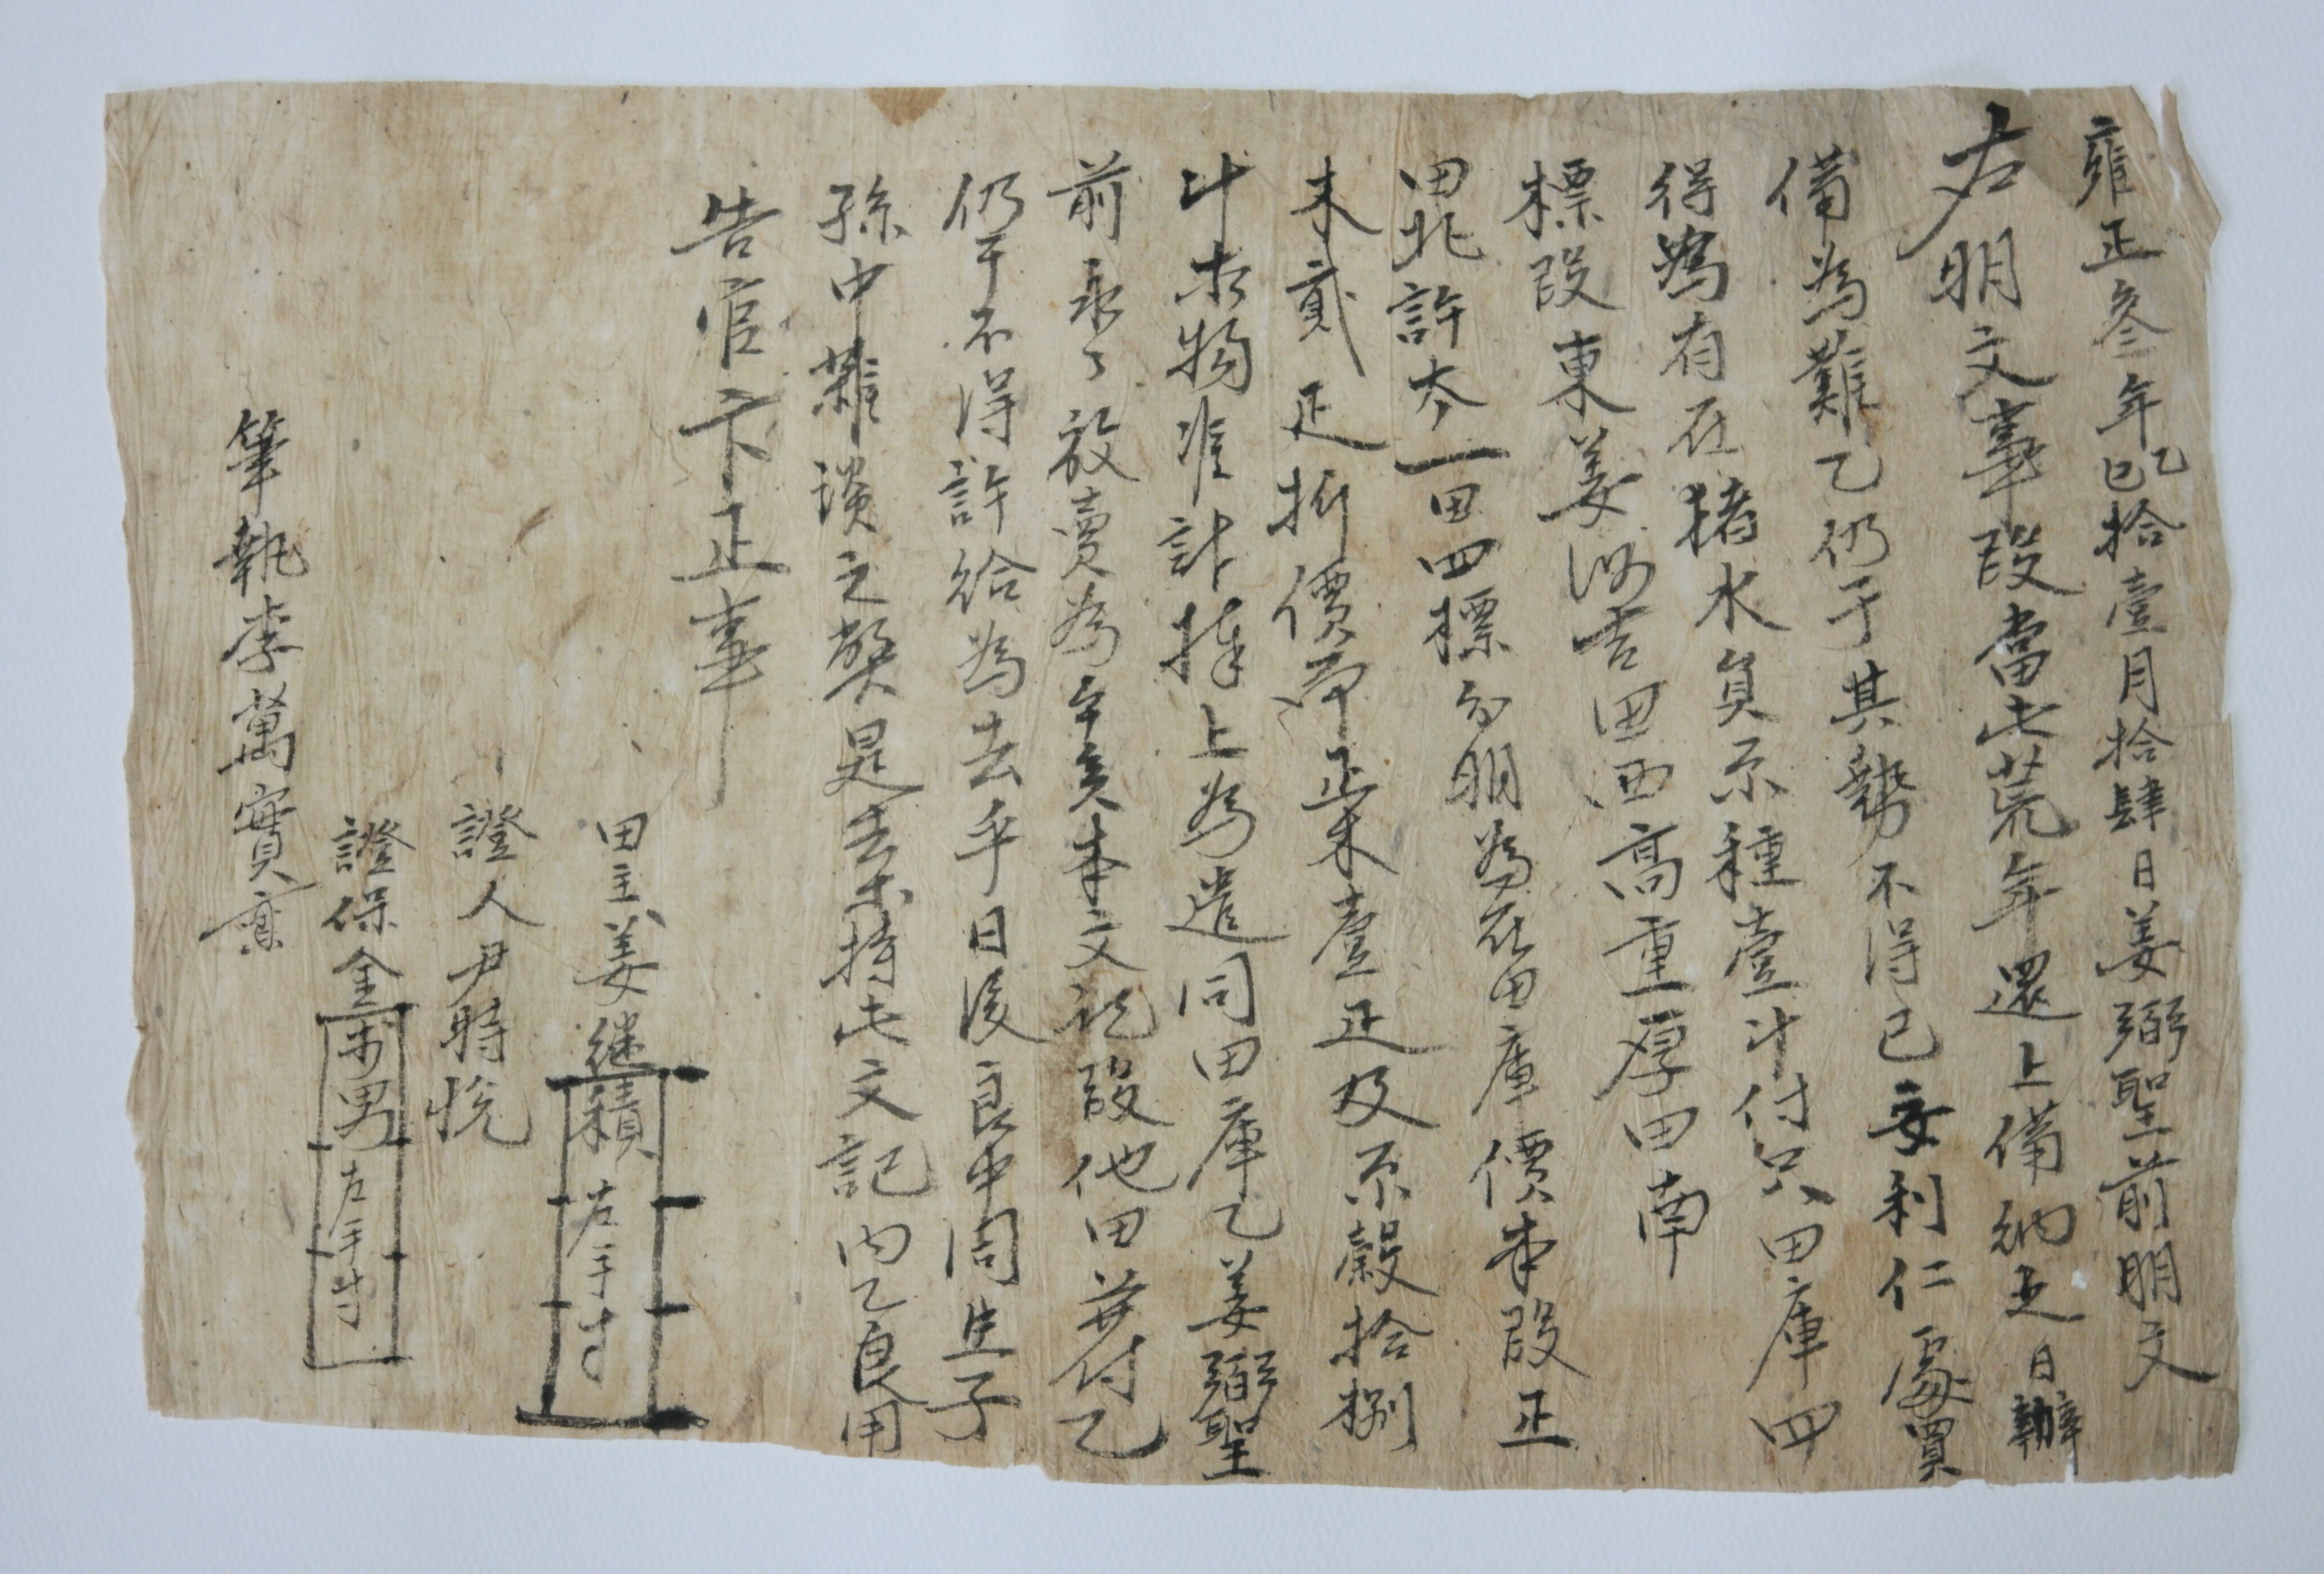 雍正參年乙巳拾壹月拾肆日姜弼聖前明文
右明文事段當此荒年還上備納是日辦
備為難乙仍于其勢不得已妾利仁處買
得為有在猪水員豆種壹斗付只田庫四
標段東姜沙吉田西高重厚田南
田北許太一田四標分明為在田庫價本段正
木貳疋折價牟正木壹疋及豆穀拾捌
斗本物准計捧上為遣同田庫乙姜弼聖
前永〻放賣為乎矣本文記段他田并付乙
仍于不得許給為去乎日後良中同生子
孫中雜談之弊是去等持此文記內乙良用
告官卞正事
田主姜継積左手寸
證人尹時悅
證保金男左手寸
筆執李萬實